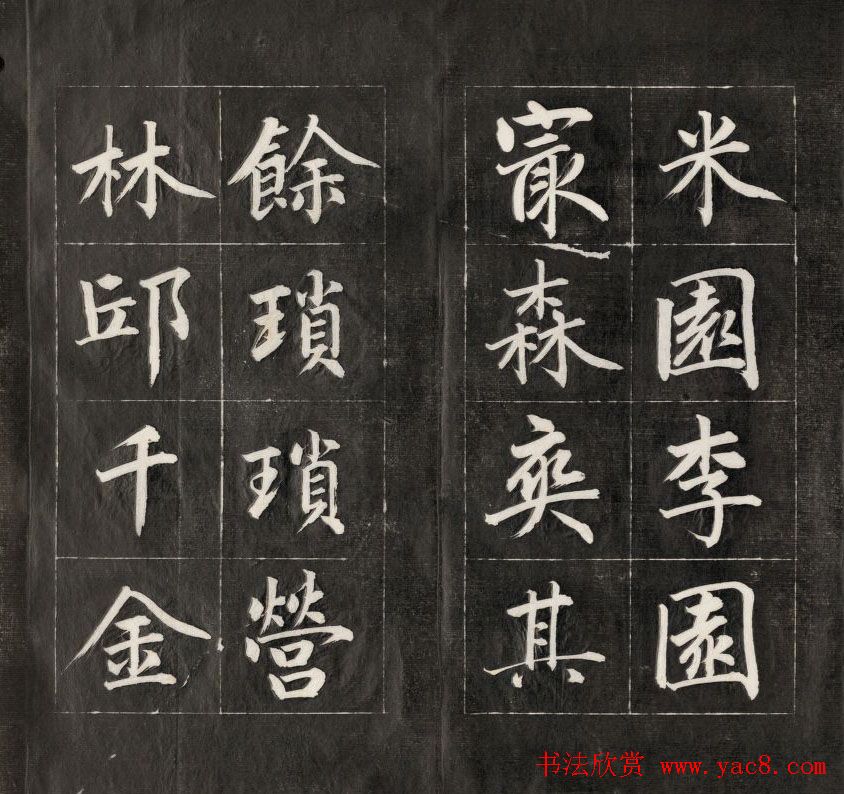 米園李園
㝡森爽其
餘瑣瑣營
林邱千金
书法欣赏 www.yac8.com